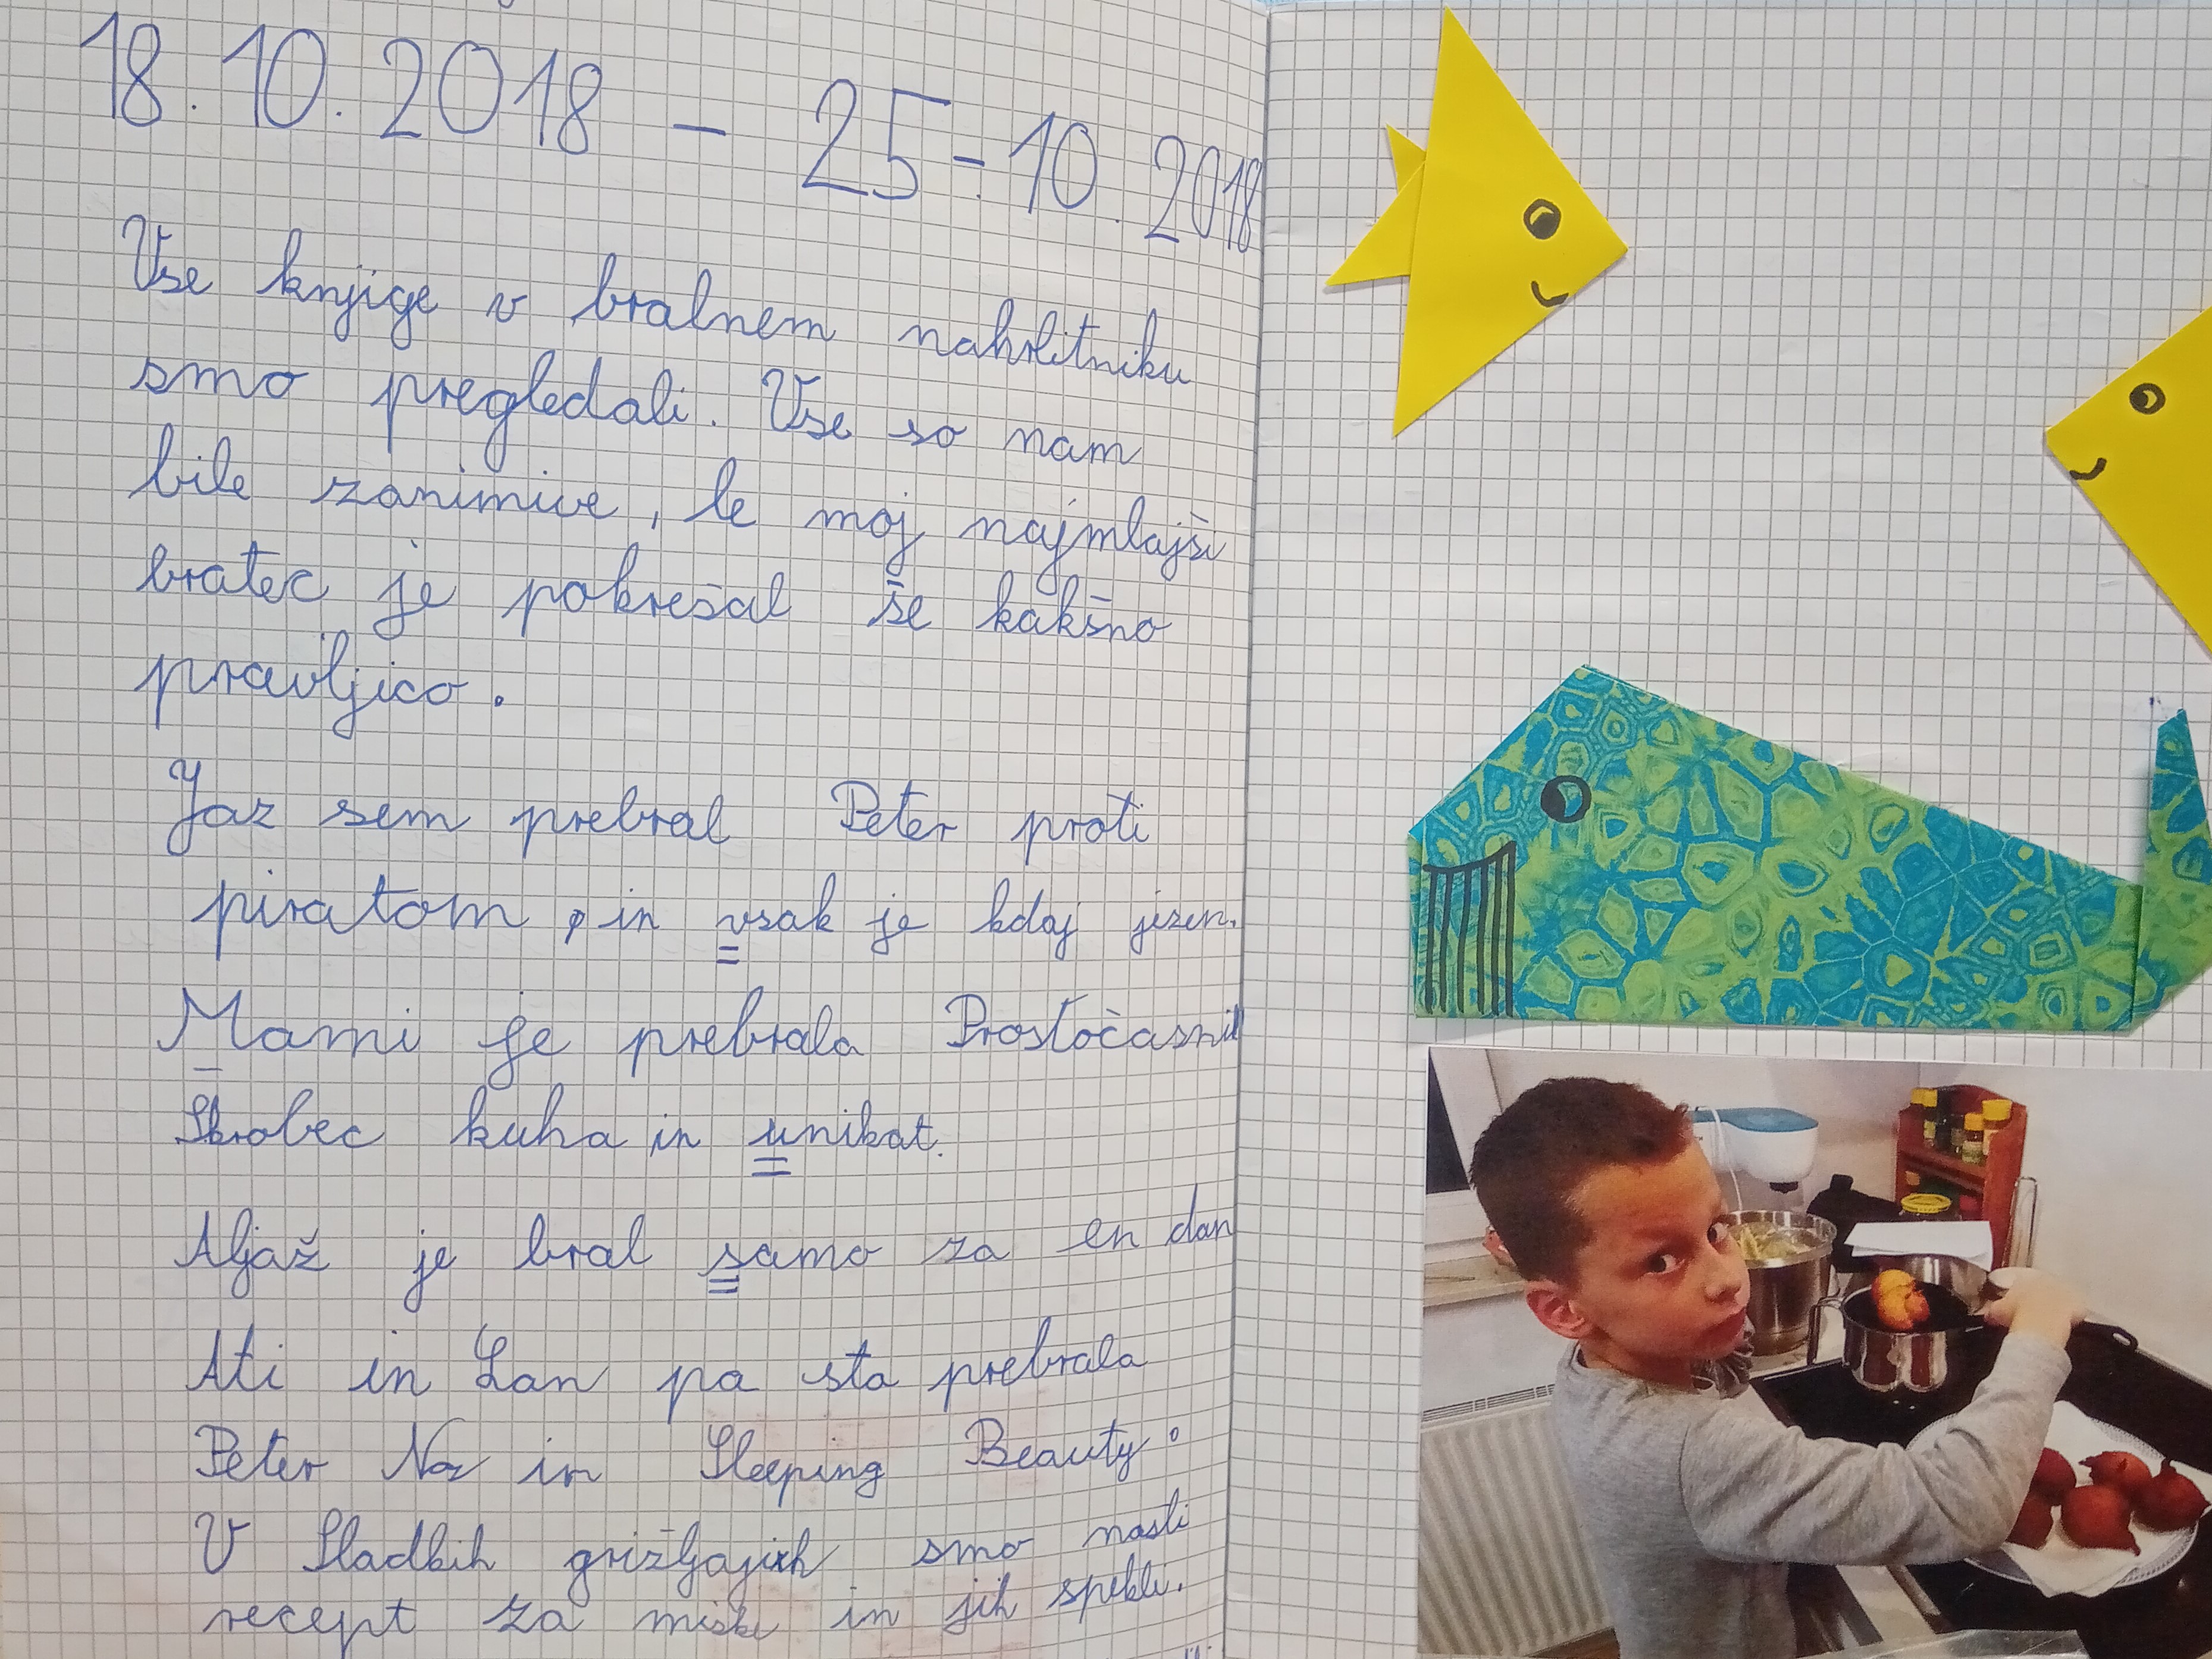 18. 10. 2018 - 25. 10. 2018
Vse knjige v bralnem nahrbtniku
smo pregledali. Vse so nam
bile zanimive, le moj najmlajši
bratec je pokrešal še kakšno
pravljico.
Jaz sem prebral Peter proti
piratom, in vsak je kdaj jezen.
Mami je prebrala Prostočasnik
Skrobec kuha in unikat.
Aljaž je bral samo za en dan
Ati in Lan pa sta prebrala
Peter Nos in Sleeping Beauty.
V Sladkih grižljajih smo našli
recept za miške in jih spekli.